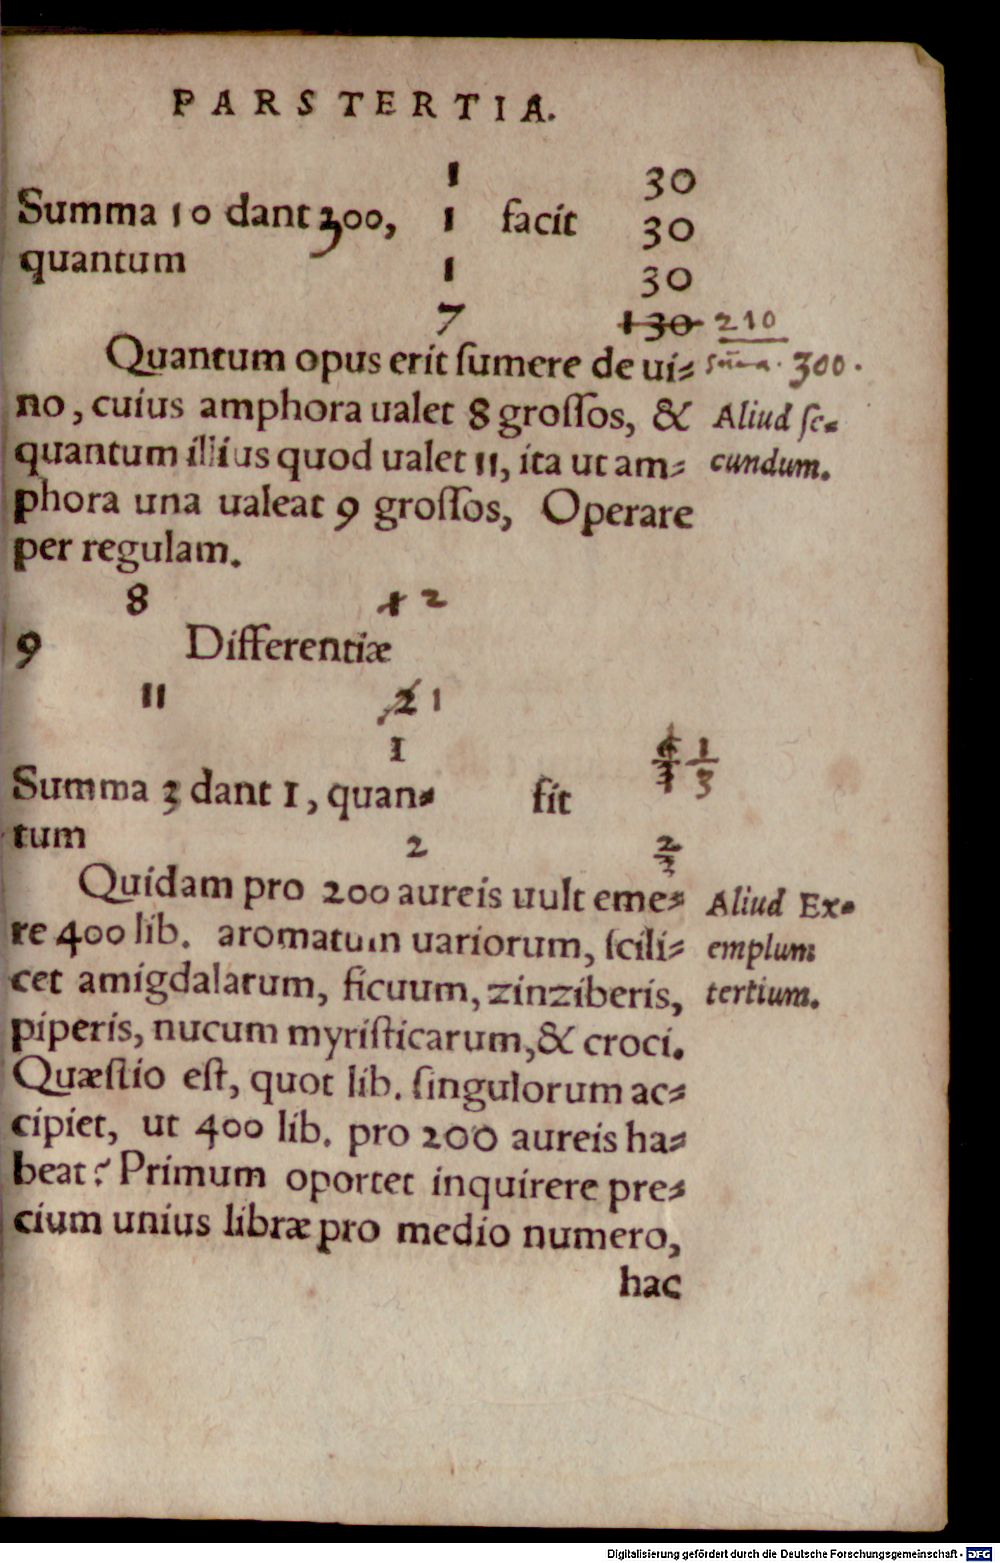 PARS TERTIA.
1 30
Summa 10 dant 300, 1 facit 30
quantum 1 30
7 130 210
Quantum opus erit ſumere de ui⸗ Sum̃a . 300 .
no, cuius amphora ualet 8 groſſos, & Aliud ſe⸗
quantum illius quod ualet 11, ita ut am⸗ cundum.
phora una ualeat 9 groſſos, Operare
per regulam.
8 1 2
9 Differentiæ
11 2 1
1 1/3
Summa 3 dant 1, quan⸗ fit
tum 2 2/3
Quidam pro 200 aureis uult eme⸗ Aliud Ex⸗
re 400 lib. aromatum uariorum, ſcili⸗ emplum
cet amigdalarum, ficuum, zinziberis, tertium.
piperis, nucum myriſticarum, & croci.
Quæſtio eſt, quot lib. ſingulorum ac⸗
cipiet, ut 400 lib. pro 200 aureis ha⸗
beat? Primum oportet inquirere pre⸗
cium unius libræ pro medio numero,
hac
Digitalisierung gefördert durch die Deutsche Forschungsgemeinschaft - DFG